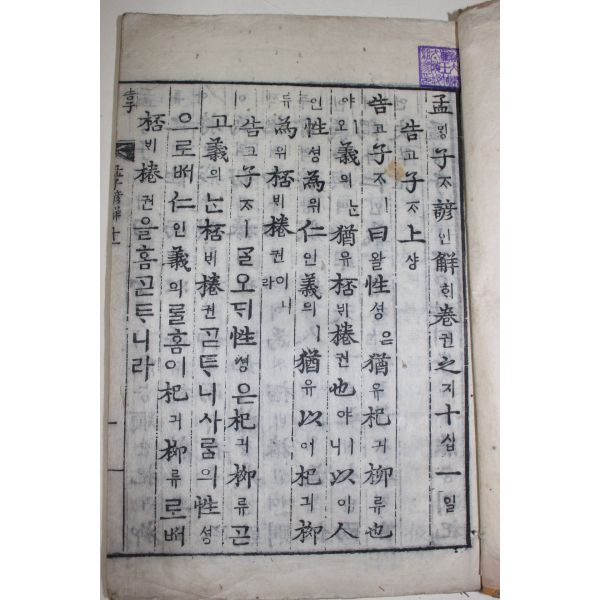 孟ᄆᆡᆼ子ᄌᆞ諺언解ᄒᆡ卷권之지十십一일
告고子ᄌᆞ上샹
告고子ᄌᆞㅣ曰왈性셩은猶유杞긔柳류也
야오義의ᄂᆞᆫ猶유桮ᄇᆡ棬권也야ㅣ니以이人
인性셩為위仁인義의ㅣ猶유以이杞긔柳
류為위桮ᄇᆡ棬권이니라
告고子ᄌᆞㅣᄀᆞᆯ오ᄃᆡ性셩은杞긔柳류ᄀᆞᆮ
고義의ᄂᆞᆫ桮ᄇᆡ棬권ᄀᆞᆮᄐᆞ니사ᄅᆞᆷ의性셩
으로ᄡᅥ仁인義의ᄅᆞᆯ홈이杞긔柳류로ᄡᅥ
桮ᄇᆡ棬권을홈ᄀᆞᆮᄐᆞ니라
孟子諺解 十一